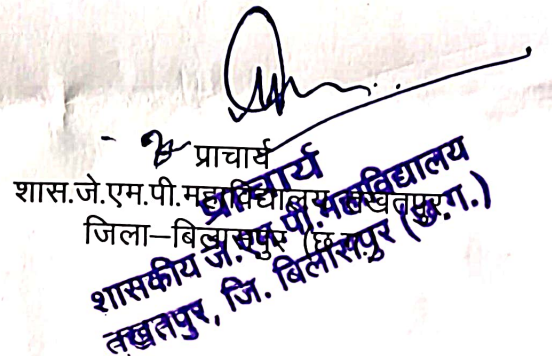 प्राचार्य
शास.जे.एम.पी.महाविद्यालय तखतपुर
जिला–बिलासपुर (छ.ग.)
प्राचार्य
शासकीय जे.एम.पी.महाविद्यालय
तखतपुर, जि. बिलासपुर (छ.ग.)